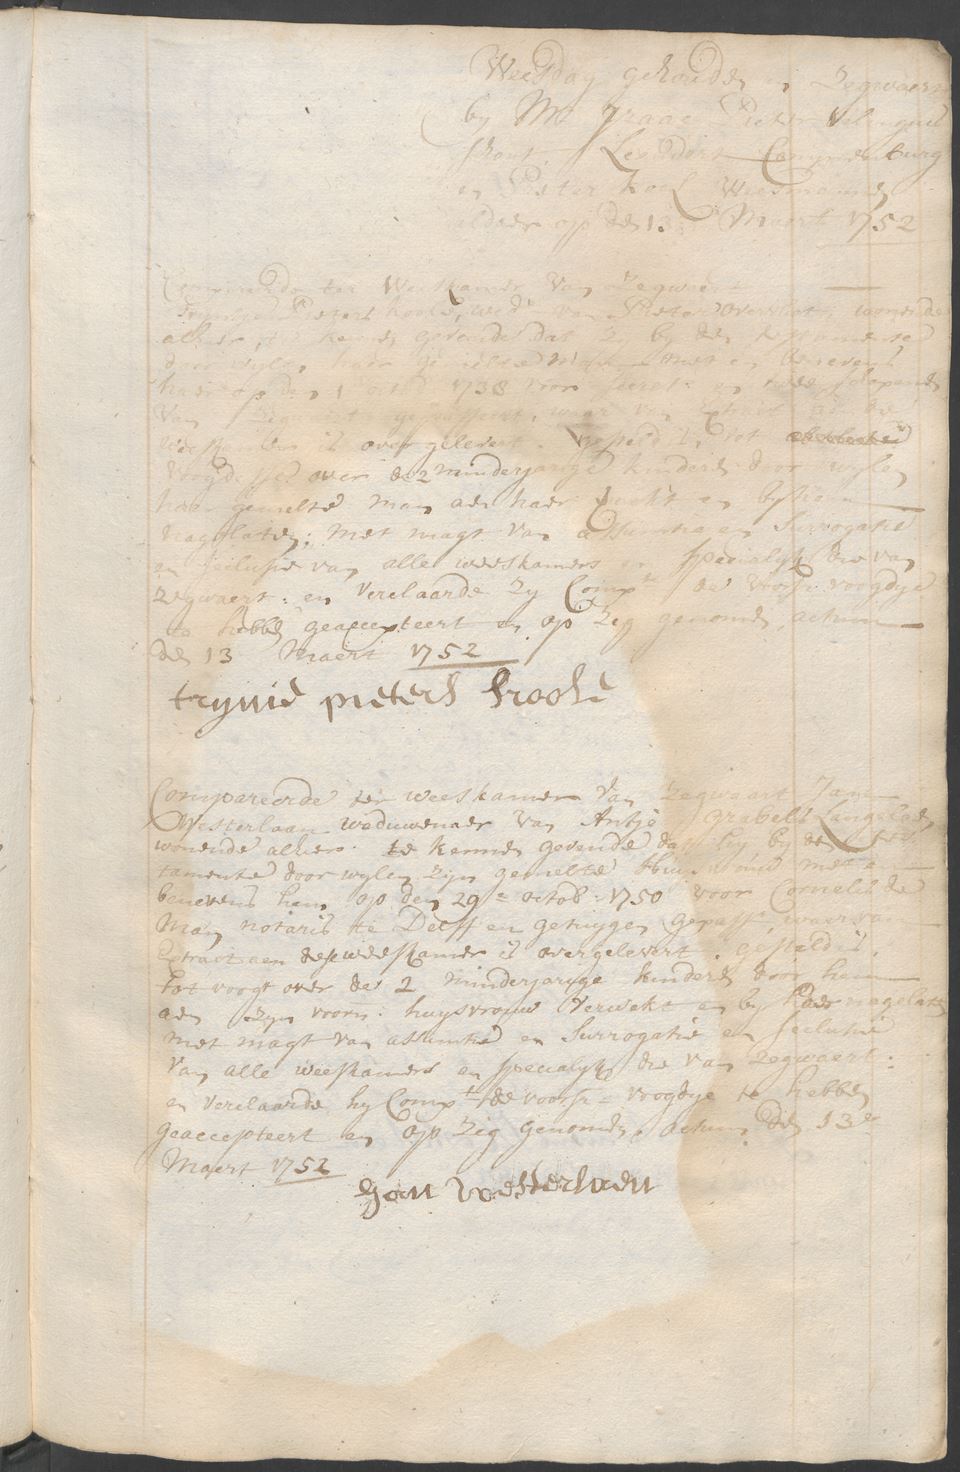 Weesdag gehouden in Zegwaert
by Mr Izaac Pieter
schout, Leendert
en Pieter Kool Weesmannen
aldaer op den 13 Maert 1752
Compareerde ter Weeskamer van Zegwaert
Pieters Koole, wede van Pieter wonende
alhier, te kennen gevende dat zy by den testamente
door wylen haer gemelde man met en benevens
haer op den 1 octob 1738 voor secret: en twee schepenen
van Zegwaert gepasseert, waar van Extract aen de
weeskamer is overgelevert. gesteld is tot
voogdesse over de 2 minderjarige kinderen door wylen
haer gemelte man aen haer verwekt en by haer
nagelaten; met magt van assumtie en surrogatie
en seclusie van alle weeskamers en specialyk die van
Zegwaert: en verclaarde zy Compte de voorsr: voogdye
te hebben geaccepteert en op zig genomen, actum
den 13 Maert 1752
tryntie pieters koole
Compareerde ter weeskamer van Zegwaert Jan
Westerlaan weduwenaer van Antje Langelaen
wonende alhier. te kennen gevende dat hy by den tes
tamente door wylen zyn gemelte huysvrouw met en
benevens hem op den 29e octob: 1750 voor Cornelis de
Man notaris te Delft en getuygen gepasst, waervan
Extract aen dese weeskamer is overgelevert, gesteld is
tot voogt over de 2 minderjaryge kinderen door hem
aen zyn voorn: huysvrouw verwekt en by haer nagelaten
met magt van assumtie en surrogatie en seclusie
van alle weeskamers en specialyk die van Zegwaert:
en verclaarde hy Compt de voorsr= voogdye te hebben
geaccepteert en op zig genomen, actum den 13e
Maert 1752
Jan Westerlaen